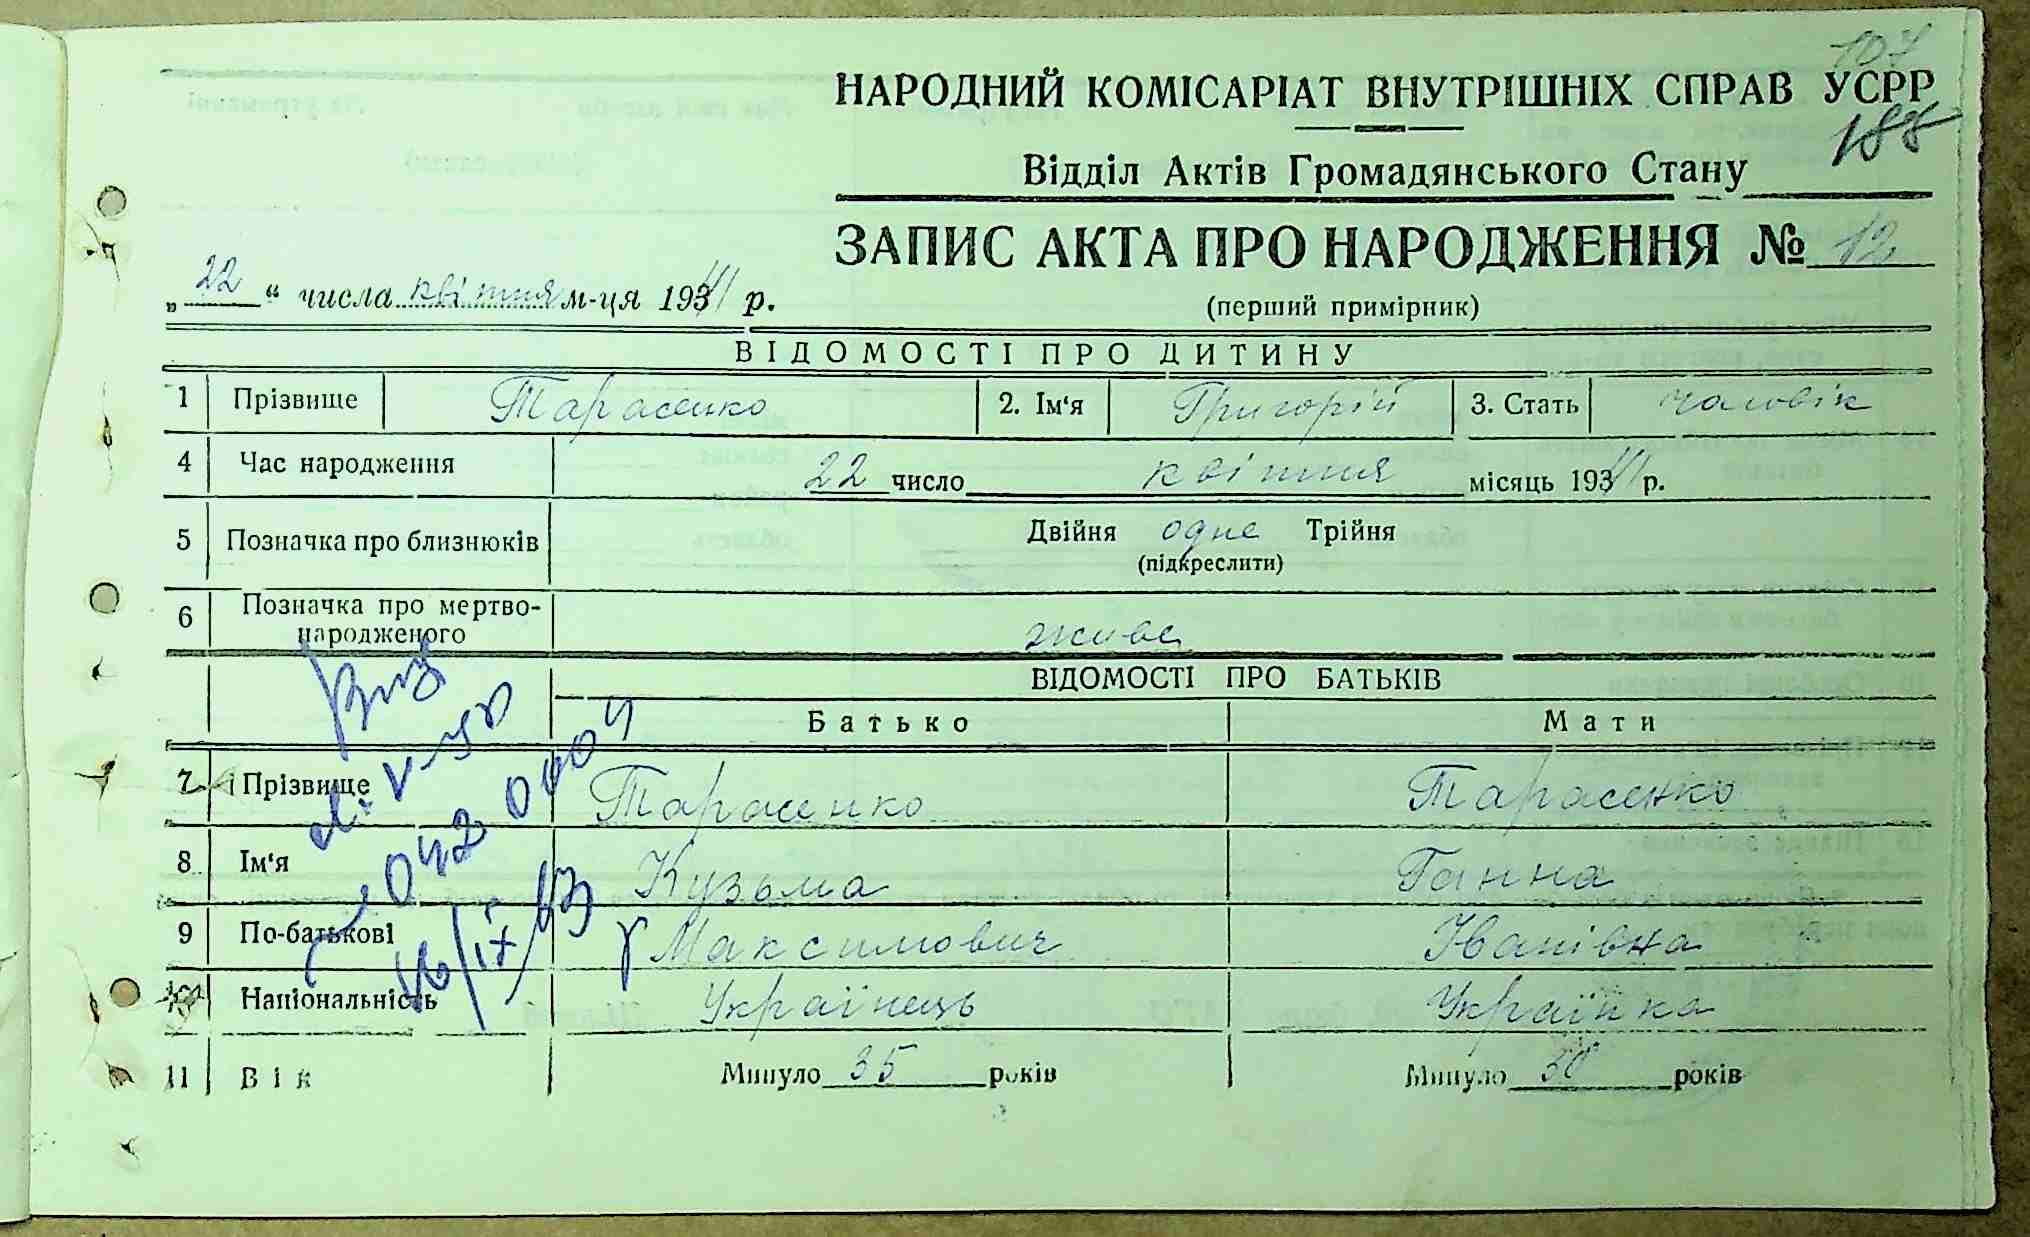 107
НАРОДНИЙ КОМІСАРІАТ ВНУТРІШНІХ СПРАВ УСРР
188
Відділ Актів Громадянського Стану
ЗАПИС АКТА ПРО НАРОДЖЕННЯ № 12
„ 22 “ числа квітня м-ця 1941 р.
(перший примірник)
ВІДОМОСТІ ПРО ДИТИНУ
1 Прізвище Тарасенко 2. Ім'я Григорій 3. Стать чоловік
4 Час народження 22 число квітня місяць 1941 р.
5 Позначка про близнюків Двійня одне Трійня
(підкреслити)
6 Позначка про мертво-
народженого живе
ВІДОМОСТІ ПРО БАТЬКІВ
Батько Мати
7 Прізвище Тарасенко Тарасенко
8 Ім'я Кузьма Ганна
9 По-батькові Максимович Іванівна
10 Національність Українець Українка
11 Вік Минуло 35 років Минуло 30 років